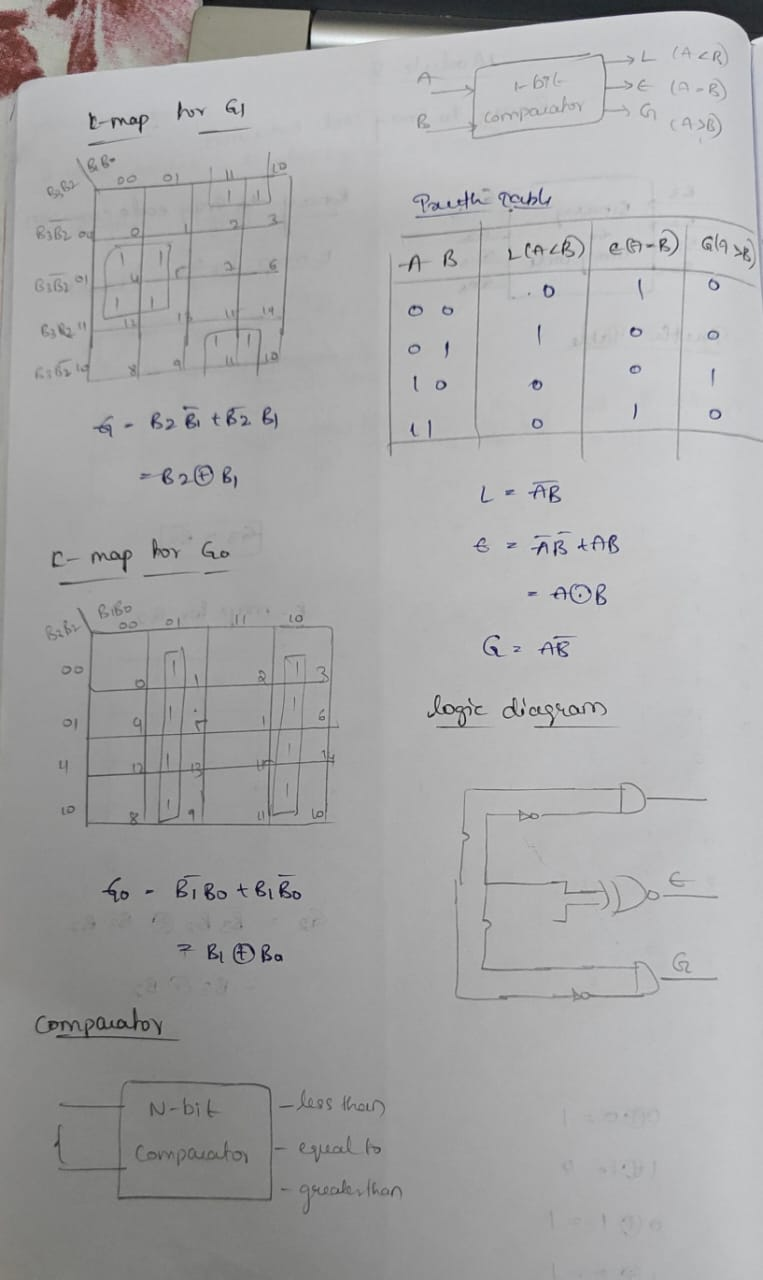 K-map for G1
B1B0
B3B2
00 01 11 10
1 1
B3B2 00 0 1 2 3
1 1
B3B2 01 4 5 7 6
1 1
B3B2 11 12 13 15 14
1 1
B3B2 10 8 9 11 10
G = B2 B̅1 + B̅2 B1
= B2 ⊕ B1
K-map for G0
B1B0
B3B2
00 01 11 10
00 0 1 1 2 1 3
01 4 1 5 1 6
11 12 1 13 15 1 14
10 8 1 9 11 1 10
G0 = B̅1 B0 + B1 B̅0
= B1 ⊕ B0
Comparator
N-bit
Comparator
- less than
- equal to
- greater than
A
B
1-bit
comparator
L (A<B)
E (A=B)
G (A>B)
Truth Table
A B L(A<B) E(A=B) G(A>B)
0 0 0 1 0
0 1 1 0 0
1 0 0 0 1
1 1 0 1 0
L = A̅B
E = A̅B̅ + AB
= A⊙B
G = AB̅
logic diagram
E
G